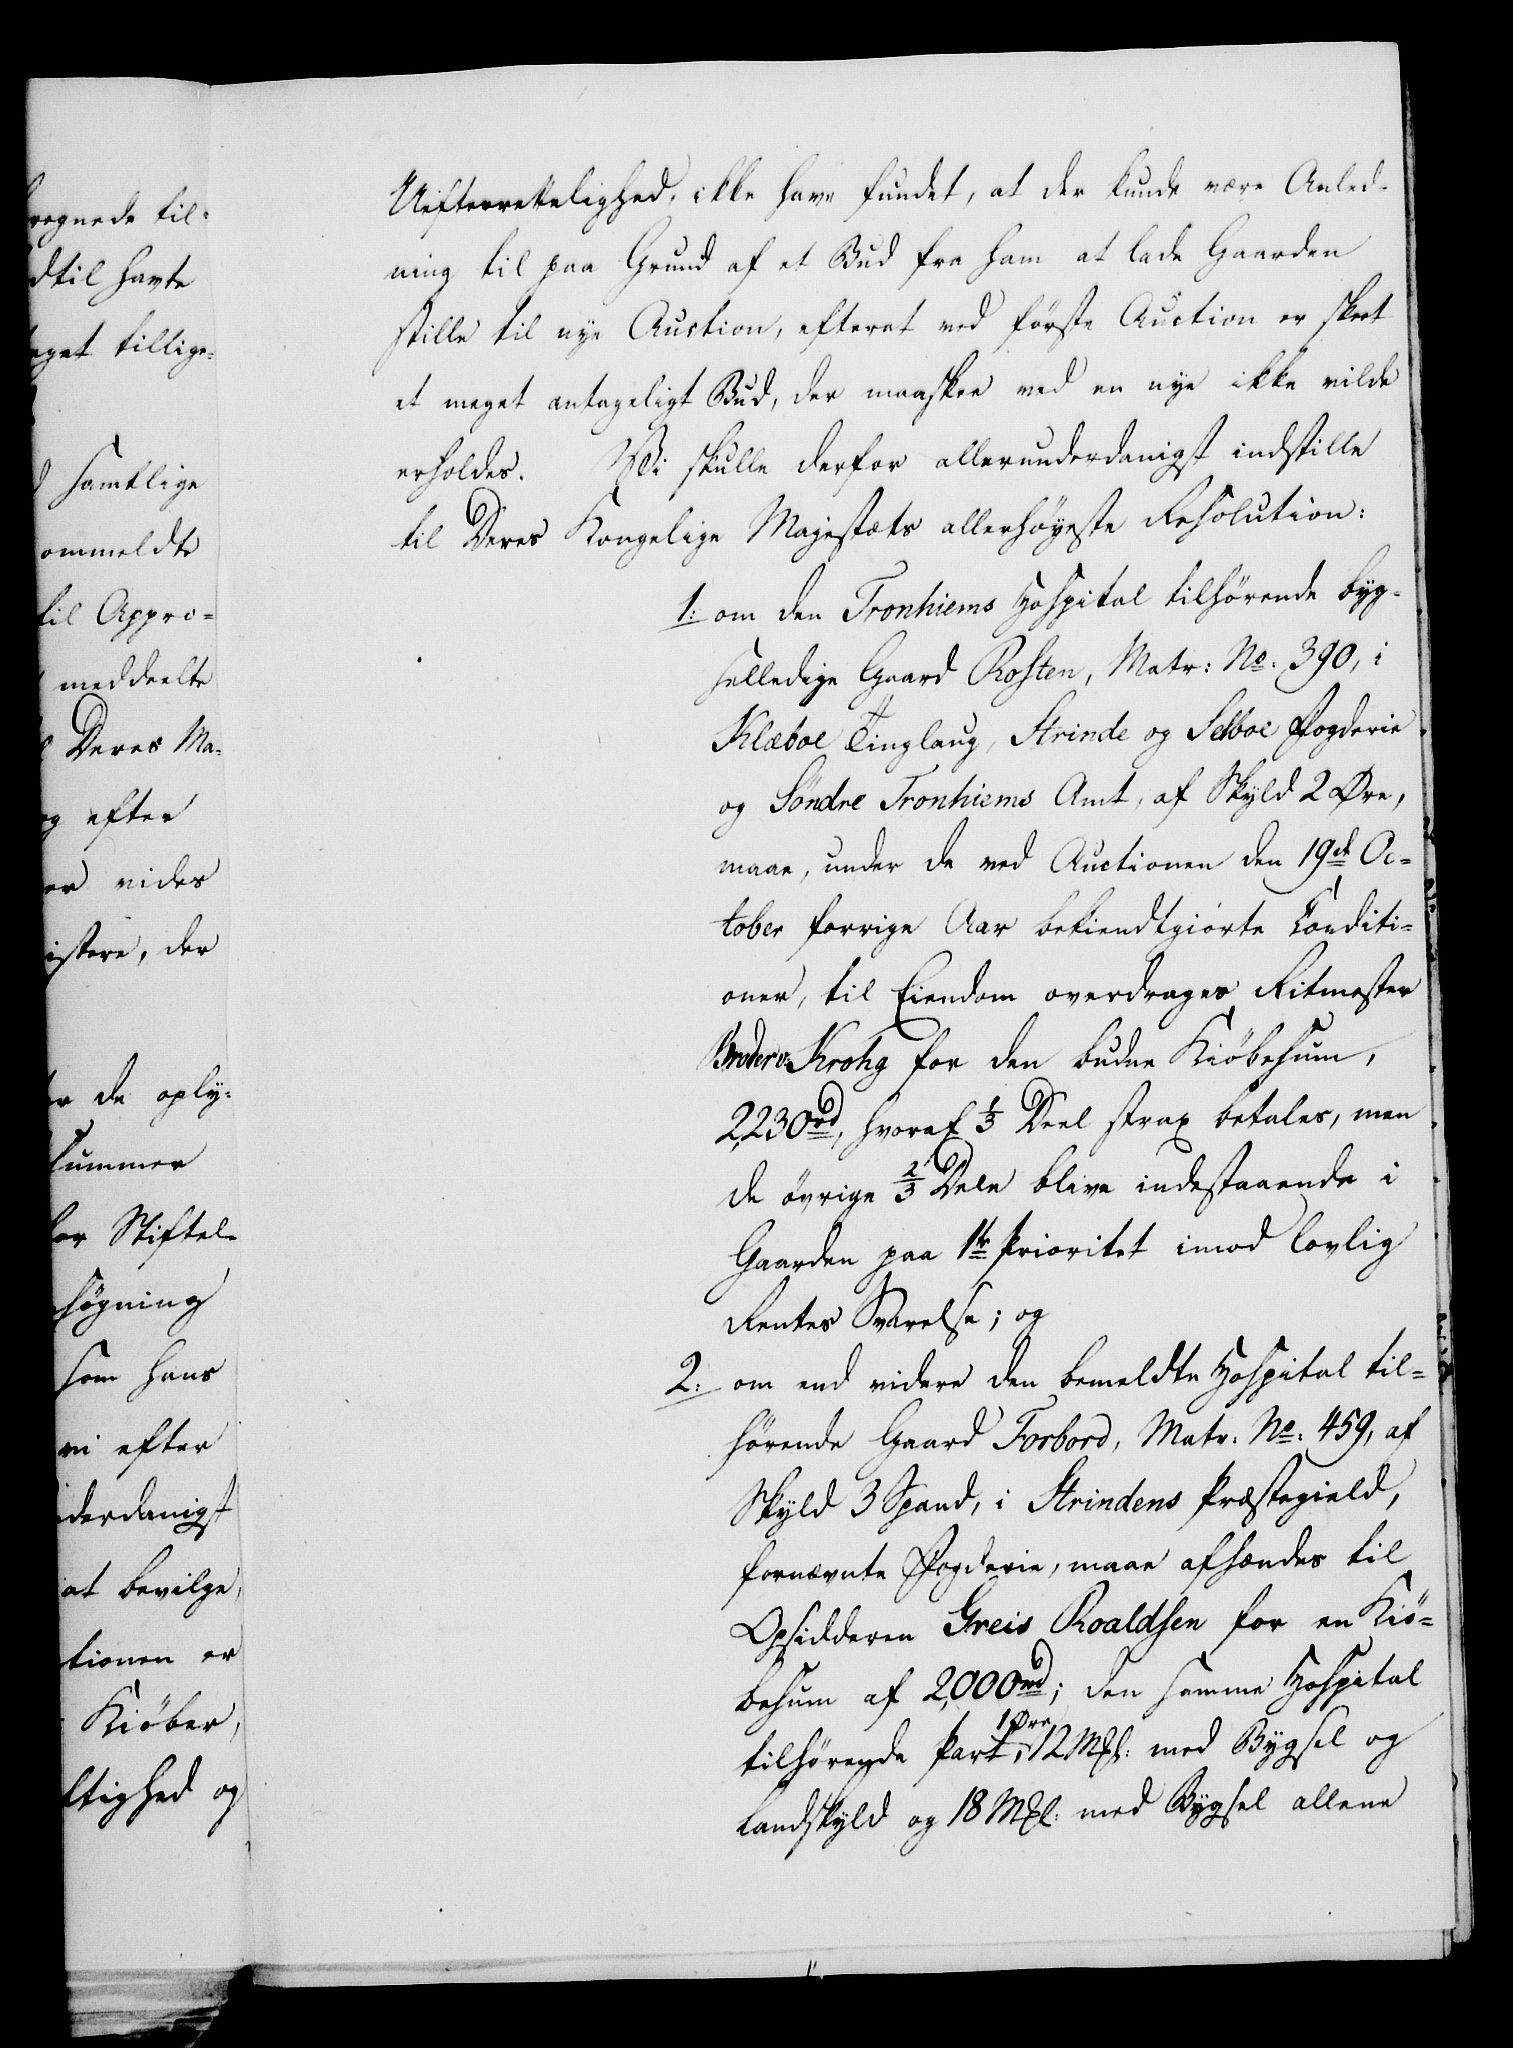 regnede til-
dtil havte
eget tillige-
samtlige
ommeldte
til Appro-
meddeelte
Deres Ma-
og efter
er vides
istere, der
de oply-
summer
for Stiftel-
søgning
som hans
vi efter
derdanigst
at bevilge,
tionen er
Kiöber,
ltighed og
Uefterrettelighed, ikke have fundet, at der kunde være Anled-
ning til paa Grund af et Bud fra ham at lade Gaarden
stille til nye Auction, efterat ved förste Auction er skeet
et meget antageligt Bud, der maaskee ved en nye ikke vilde
erholdes. Vi skulle derfor allerunderdanigst indstille
til Deres Kongelige Majestæts allerhöyeste Resolution:
1: om den Tronhiems Hospital tilhörende byg-
selledige Gaard Rosten, Matr: No. 390, i
Klæboe Tinglaug, Strinde og Selboe Fogderie
og Söndre Tronhiems Amt, af Skyld 2 Øre,
maae, under de ved Auctionen den 19de Oc-
tober forrige Aar bekiendtgiorte Conditi-
oner, til Eiendom overdrages Ritmester
Broder v: Krohg for den budne Kiöbesum,
2,230 rd, hvoraf 1/3 Deel strax betales, men
de övrige 2/3 Dele blive indestaaende i
Gaarden paa 1te Prioritet imod lovlig
Rentes Svarelse; og
2: om end videre den bemeldte Hospital til-
hörende Gaard Forbord, Matr: No: 459, af
Skyld 3 Spand, i Strindens Præstegield,
fornævnte Fogderie, maae afhændes til
Opsidderen Greis Roaldsen for en Kiö-
besum af 2,000 rd; den samme Hospital
tilhörende Part, 1 Øre 12 Mkl: med Bygsel og
Landskyld og 18 Mkl: med Bygsel allene